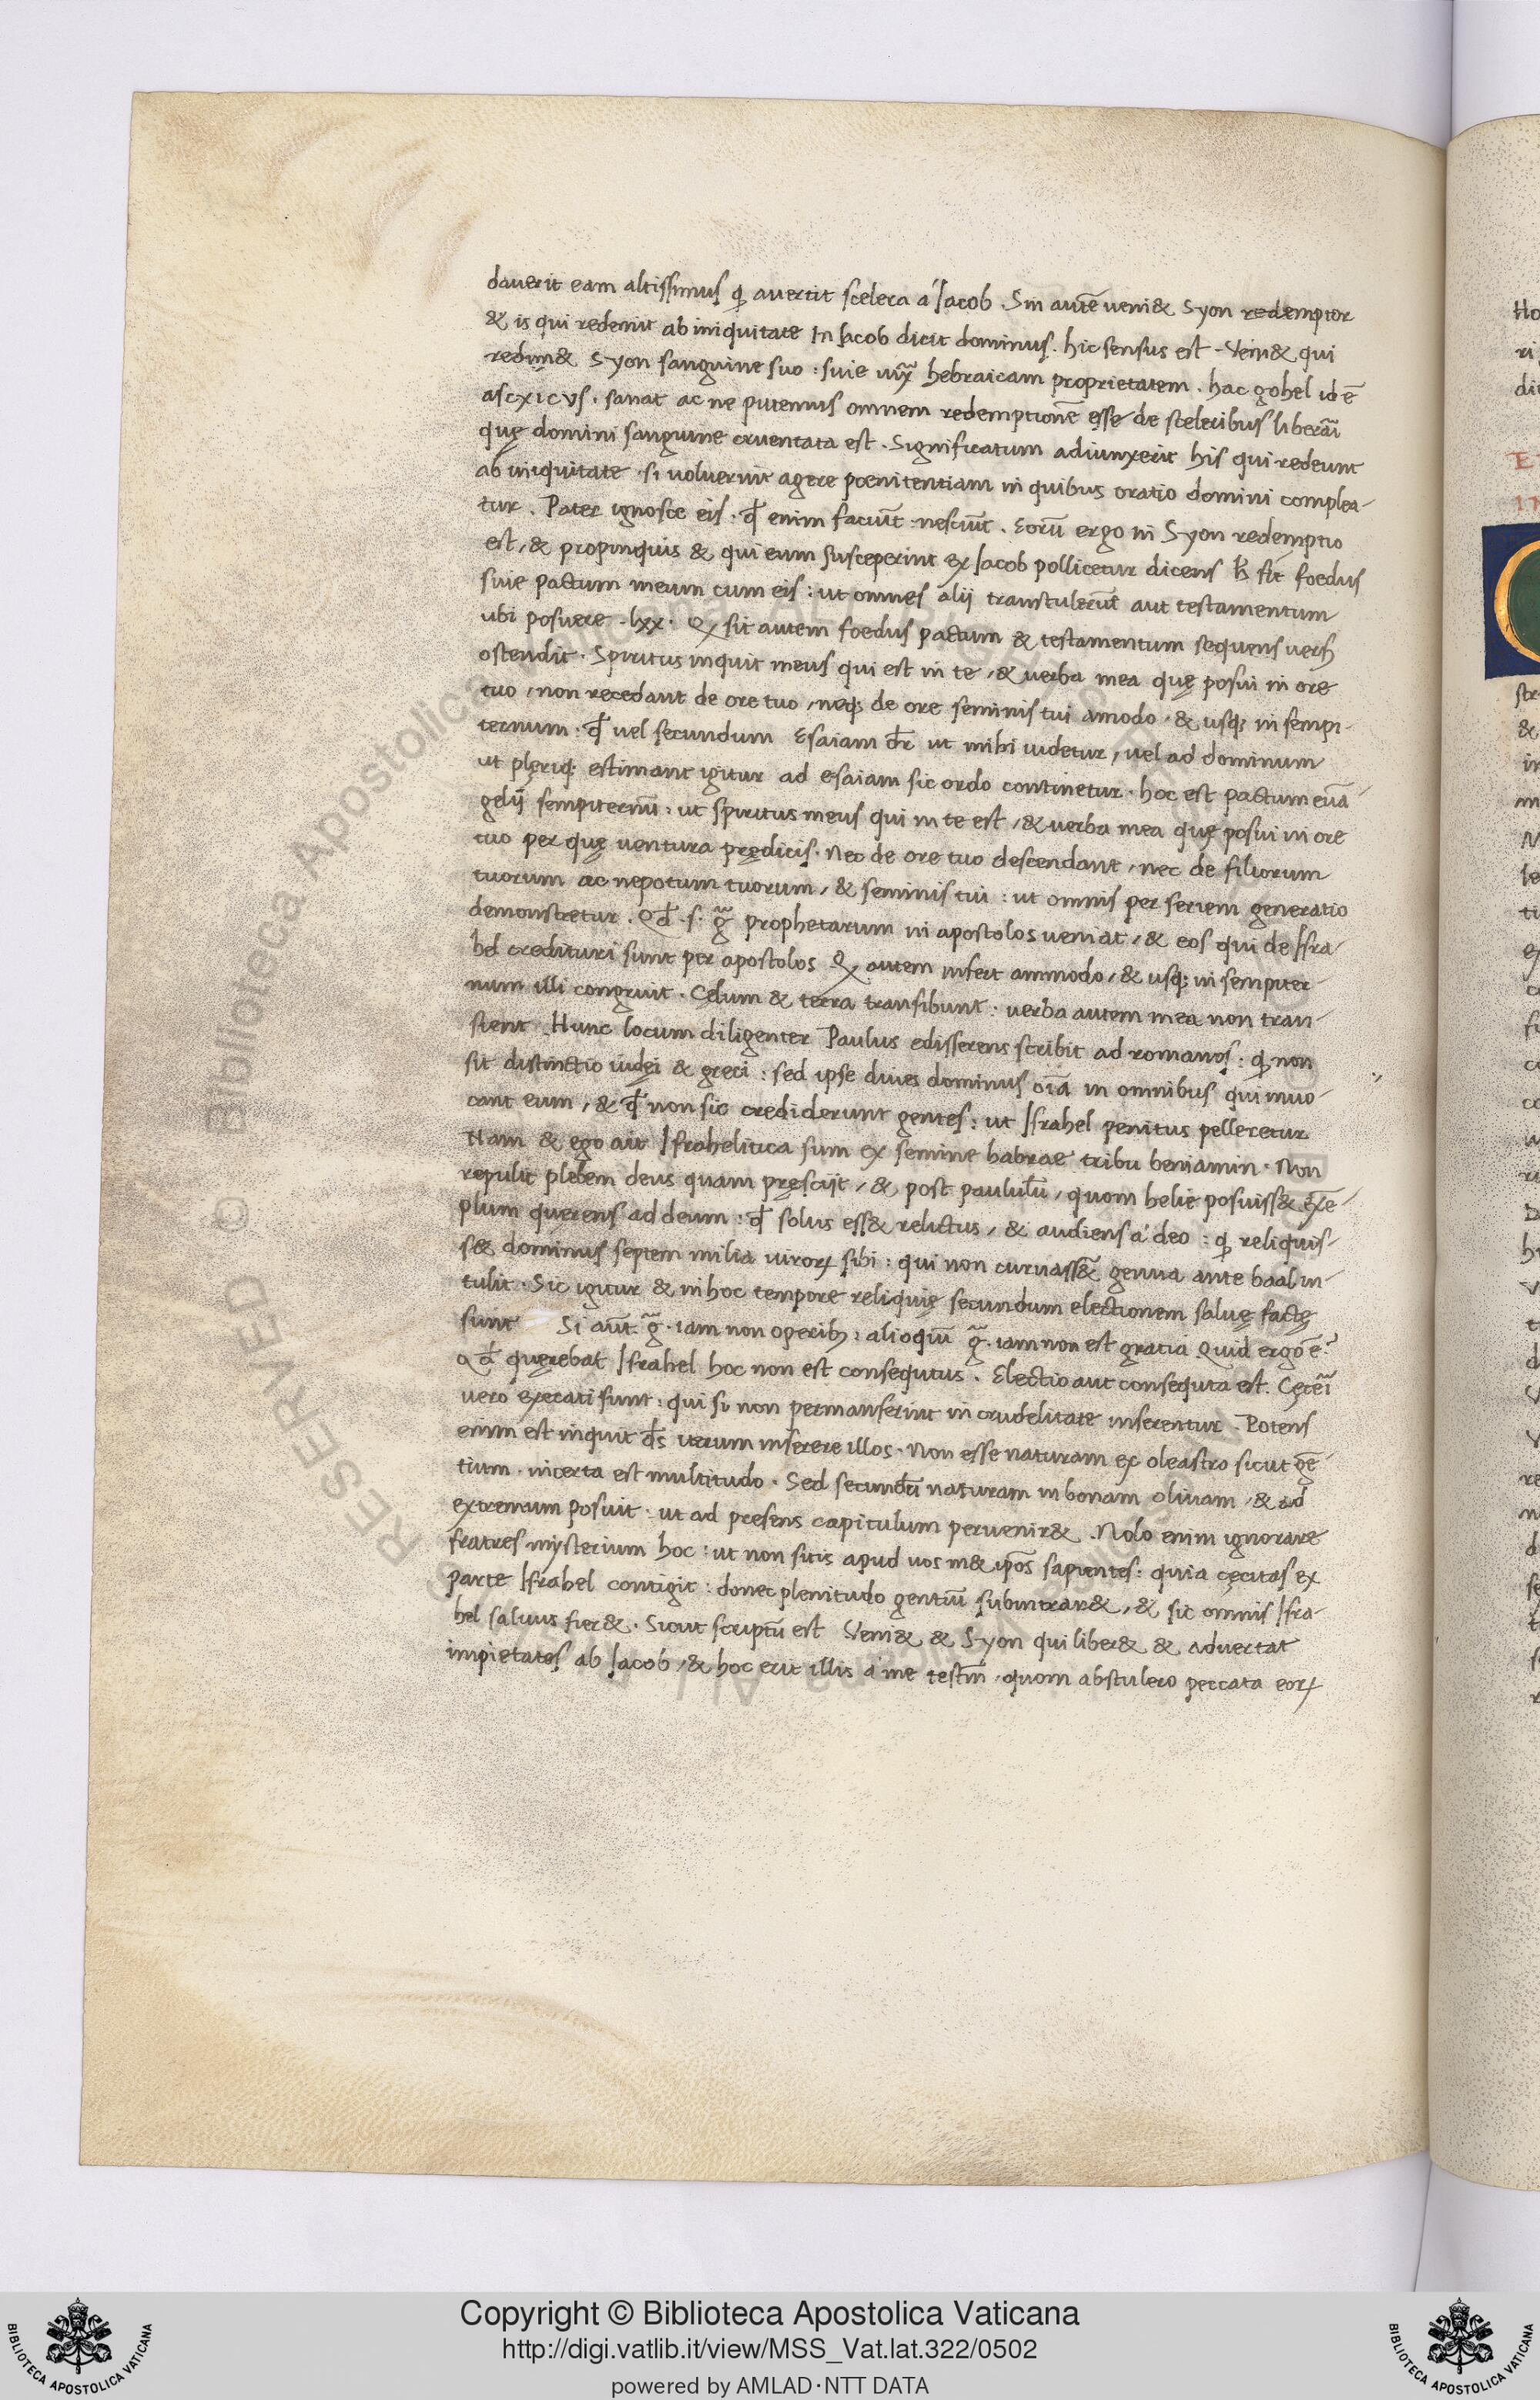 dauerit eam altissimus ꝙ auertit scelera á Iacob. Sin autē ueni& Syon redemptor
& is qui rediniit ab iniquitate In Iacob dicit dominus. hic sensus est. Veni& qui
redim& Syon sanguine suo: siue iux̄ hebraicam proprietatem. hac gohel id ē
sanat ac ne putemus omnem redemptionē esse de sceleribus liberā
quę domini sanguine cruentata est. Significatum adiunxerit his qui redeunt
ab iniquitate. si uoluerint agere poenitentiam in quibus oratio domini complea-
tur. Pater ignosce eis. qđ enim faciūt: nesciūt. Eorū ergo in Syon redemptio
est, & propinquis & qui eum susceperint ex Iacob pollicetur dicens fit foedus
siue pactum meum cum eis: ut omnes alij transtulerūt aut testamentum
ubi posuere. lxx. Q sit autem foedus pactum & testamentum sequens uers
ostendit. Spiritus inquit meus qui est in te, & uerba mea quę posui in ore
tuo, non recedant de ore tuo, neq; de ore seminis tui amodo, & usq; in sempi-
ternum: qđ uel secundum Esaiam dr̄ ut mihi uidetur, uel ad dominum
ut pleriq; estimant igitur ad esaiam sic ordo continetur. hoc est pactum euā-
gelij sempiternū: ut spiritus meus qui in te est, & uerba mea quę posui in ore
tuo per quę uentura prędicis. Nec de ore tuo descendant, nec de filiorum
tuorum ac nepotum tuorum, & seminis tui: ut omnis per seriem generatio
demonstretur. Qđ .s. g̃ prophetarum in apostolos ueniat, & eos qui de Isra-
hel credituri sunt per apostolos Q autem infert ammodo, & usq; in sempiter-
num illi congruit. Cęlum & terra transibunt: uerba autem mea non tran-
sient. Hunc locum diligenter Paulus edisserens scribit ad romanos: ꝙ non
sit distinctio iudęi & greci: sed ipse diues dominus oīa in omnibus qui inuo-
cant eum, & qđ non sic crediderunt gentes: ut Israhel penitus pelleretur
Nam & ego ait Israhelitica sum ex semine habrae tribu beniamin. Non
repulit plebem deus quam pręscijt, & post paululū, quom helie posuiss& exē-
plum querens ad deum: qđ solus ess& relictus, & audiens á deo: ꝙ reliquis-
s& dominus septem milia uiroꝝ sibi: qui non curuass& genua ante baal in-
tulit. Sic igitur & in hoc tempore reliquię secundum electionem saluę factę
sunt Si aūt. g̃. iam non operib;: alioqiū g̃. iam non est gratia Quid ergo ē?
Qđ quęrebat Israhel hoc non est consequtus. Electio aut consequta est. Cęterī
uero execati sunt: qui si non permanserint in crudelitate inserentur. Potens
enim est inquit ds̄ iterum inserere illos. Non esse naturam ex oleastro sicut gē-
tium. incerta est multitudo. Sed secundū naturam in bonam oliuam, & ad
extremum posuit. ut ad presens capitulum peruenir&. Nolo enim ignorare
fratres mysterium hoc: ut non sitis apud uos m& ip̄os sapientes: quia cęcitas ex
parte Israhel contigit: donec plenitudo gentiū subintrar&, & sic omnis Isra-
hel saluus fier&. Sicut scriptū est Veni& & Syon qui liber& & aduertat
impietates ab Iacob, & hoc erit illis á me testm̄, quom abstulero peccata eoꝝ
Copyright © Biblioteca Apostolica Vaticana
http://digi.vatlib.it/view/MSS_Vat.lat.322/0502
powered by AMLAD·NTT DATA